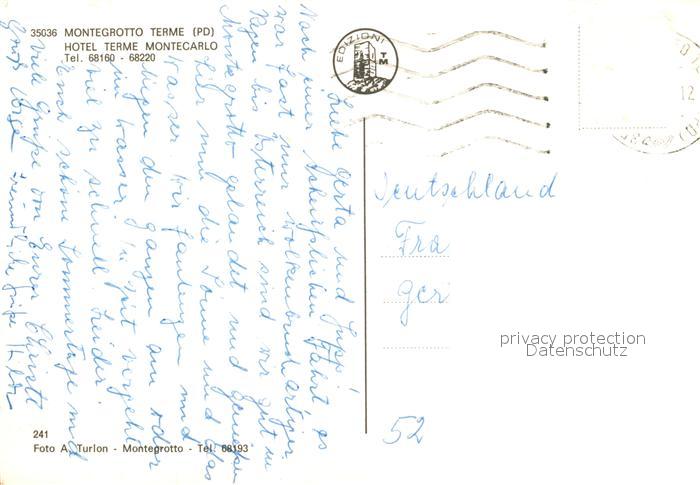 35036 MONTEGROTTO TERME (PD)
HOTEL TERME MONTECARLO
Tel. 68160 - 68220
EDIZIONI
TM
Liebe Berta und Seppi!
Nach einer scheußlichen Fahrt, es
war fast nur wolkenbruchartiger
Regen bis Österreich sind wir gut in
Montegrotto gelandet und genießen
hier nun die Sonne und das
Wasser. Wir faulenzen und
liegen den ganzen am oder
im Wasser. Zeit vergeht
viel zu schnell leider.
Euch schöne Sommertage und
viele Grüße von Eurer Christl
Gruß
Deutschland
Fra
Ger
privacy protection
Datenschutz
52
241
Foto A. Turlon - Montegrotto - Tel. 68193